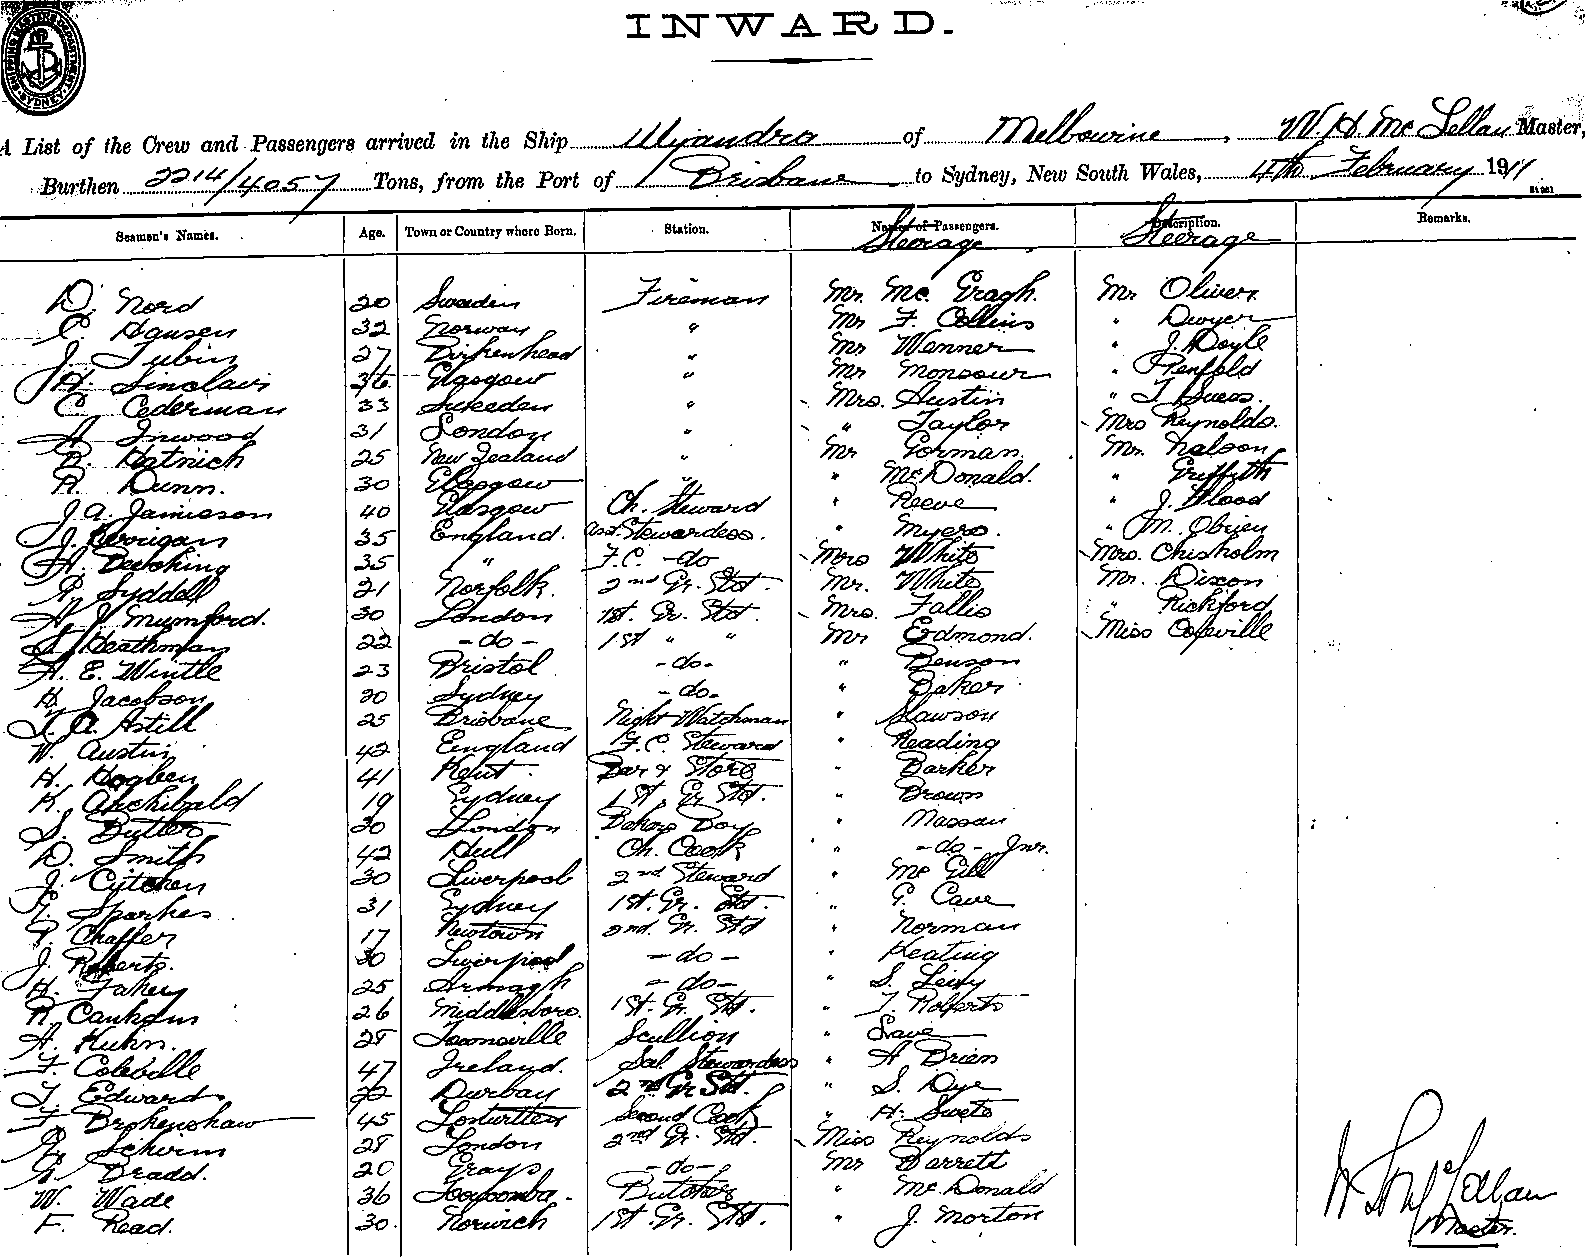 SHIPPING MASTERS DEPARTMENT SYDNEY
INWARD.
A List of the Crew and Passengers arrived in the Ship Wyandra of Melbourne, W. H. McLellan Master,
Burthen 2214/4057 Tons, from the Port of Brisbane to Sydney, New South Wales, 4th February 1911
Seamen's Names. Age. Town or Country where Born. Station. Names of Passengers. Description. Remarks.
Steerage Steerage
D. Nord 20 Sweden Fireman Mr. Mc. Gragh. Mr Oliver
C Hansen 32 Norway " Mr F. Collins " Dwyer
J. Tubin 27 Birkenhead " Mr Wanner " J. Doyle
H. Sinclair 36 Glasgow " Mr Monsour " Penfold
C Cederman 33 Sweeden " Mrs. Austin " T
A Inwood 31 London " " Taylor Mrs Reynolds.
R. Hatnich 25 New Zealand " Mr Gorman. Mr. Nalson
R. Dunn. 30 Glasgow " " McDonald. " Griffith
J. A. Jamieson 40 Glasgow Ch. Steward " Reeve " J. Flood
J. Corrigan 35 England. Asst. Stewardess. " Myers. " M. Obrien
H. Decking 35 " F.C. -do Mrs White Mrs. Chisholm
R. Syddall 21 Norfolk. 2nd Gr. Std. Mr. White Mr. Dixon
H J Mumford. 30 London 1st. Gr. Std. Mrs. Fallis " Rickford
Heathman 22 -do- 1st " " Mr Edmond. Miss Coleville
A. E. Wintle 23 Bristol -do- " Benson
H. Jacobson 20 Sydney -do- " Baker
T. A. Astill 25 Brisbane Night Watchman " Slawson
W. Austin 42 England F.C. Steward " Reading
H. Hogben 41 Kent. Bar & Store " Barker
K. Archibald 19 Sydney 1st. Gr. Std. " Brown
S. Butler 30 London Bakers Boy " Nassau
D. Smith 42 Hull Ch. Cook " -do- Jnr.
J. 30 Liverpool 2nd Steward " Mc Gill
G. Sparkes 31 Sydney 1st. Gr. Std. " G. Cave
P. Chaffer 17 Newtown 2nd. Gr. Std " Norman
J. Roberts. 30 Liverpool -do- " Keating
H. Fahey 25 Armagh -do- " S. Levy
R. Canham 26 Middlesboro. 1st. Gr. Std. " T. Roberts
A. Kuhn. 28 Townsville Scullion " Save
F. Coleville 47 Ireland. Sal. Stewardess " A Brien
T. Edwards 22 Durban 2nd Gr Std. " S. Dye
F. Brokenshaw 45 Second Cook " H. Sweto
R. Schirm 28 London 2nd Gr. Std. Miss Reynolds
G. Bradd. 20 Grays -do- Mr Barrett
W. Wade 36 Toowomba. Butcher " Mc. Donald
F. Read. 30. Norwich 1st. Gr. Std. " J. Morton
W H McLellan
Master.